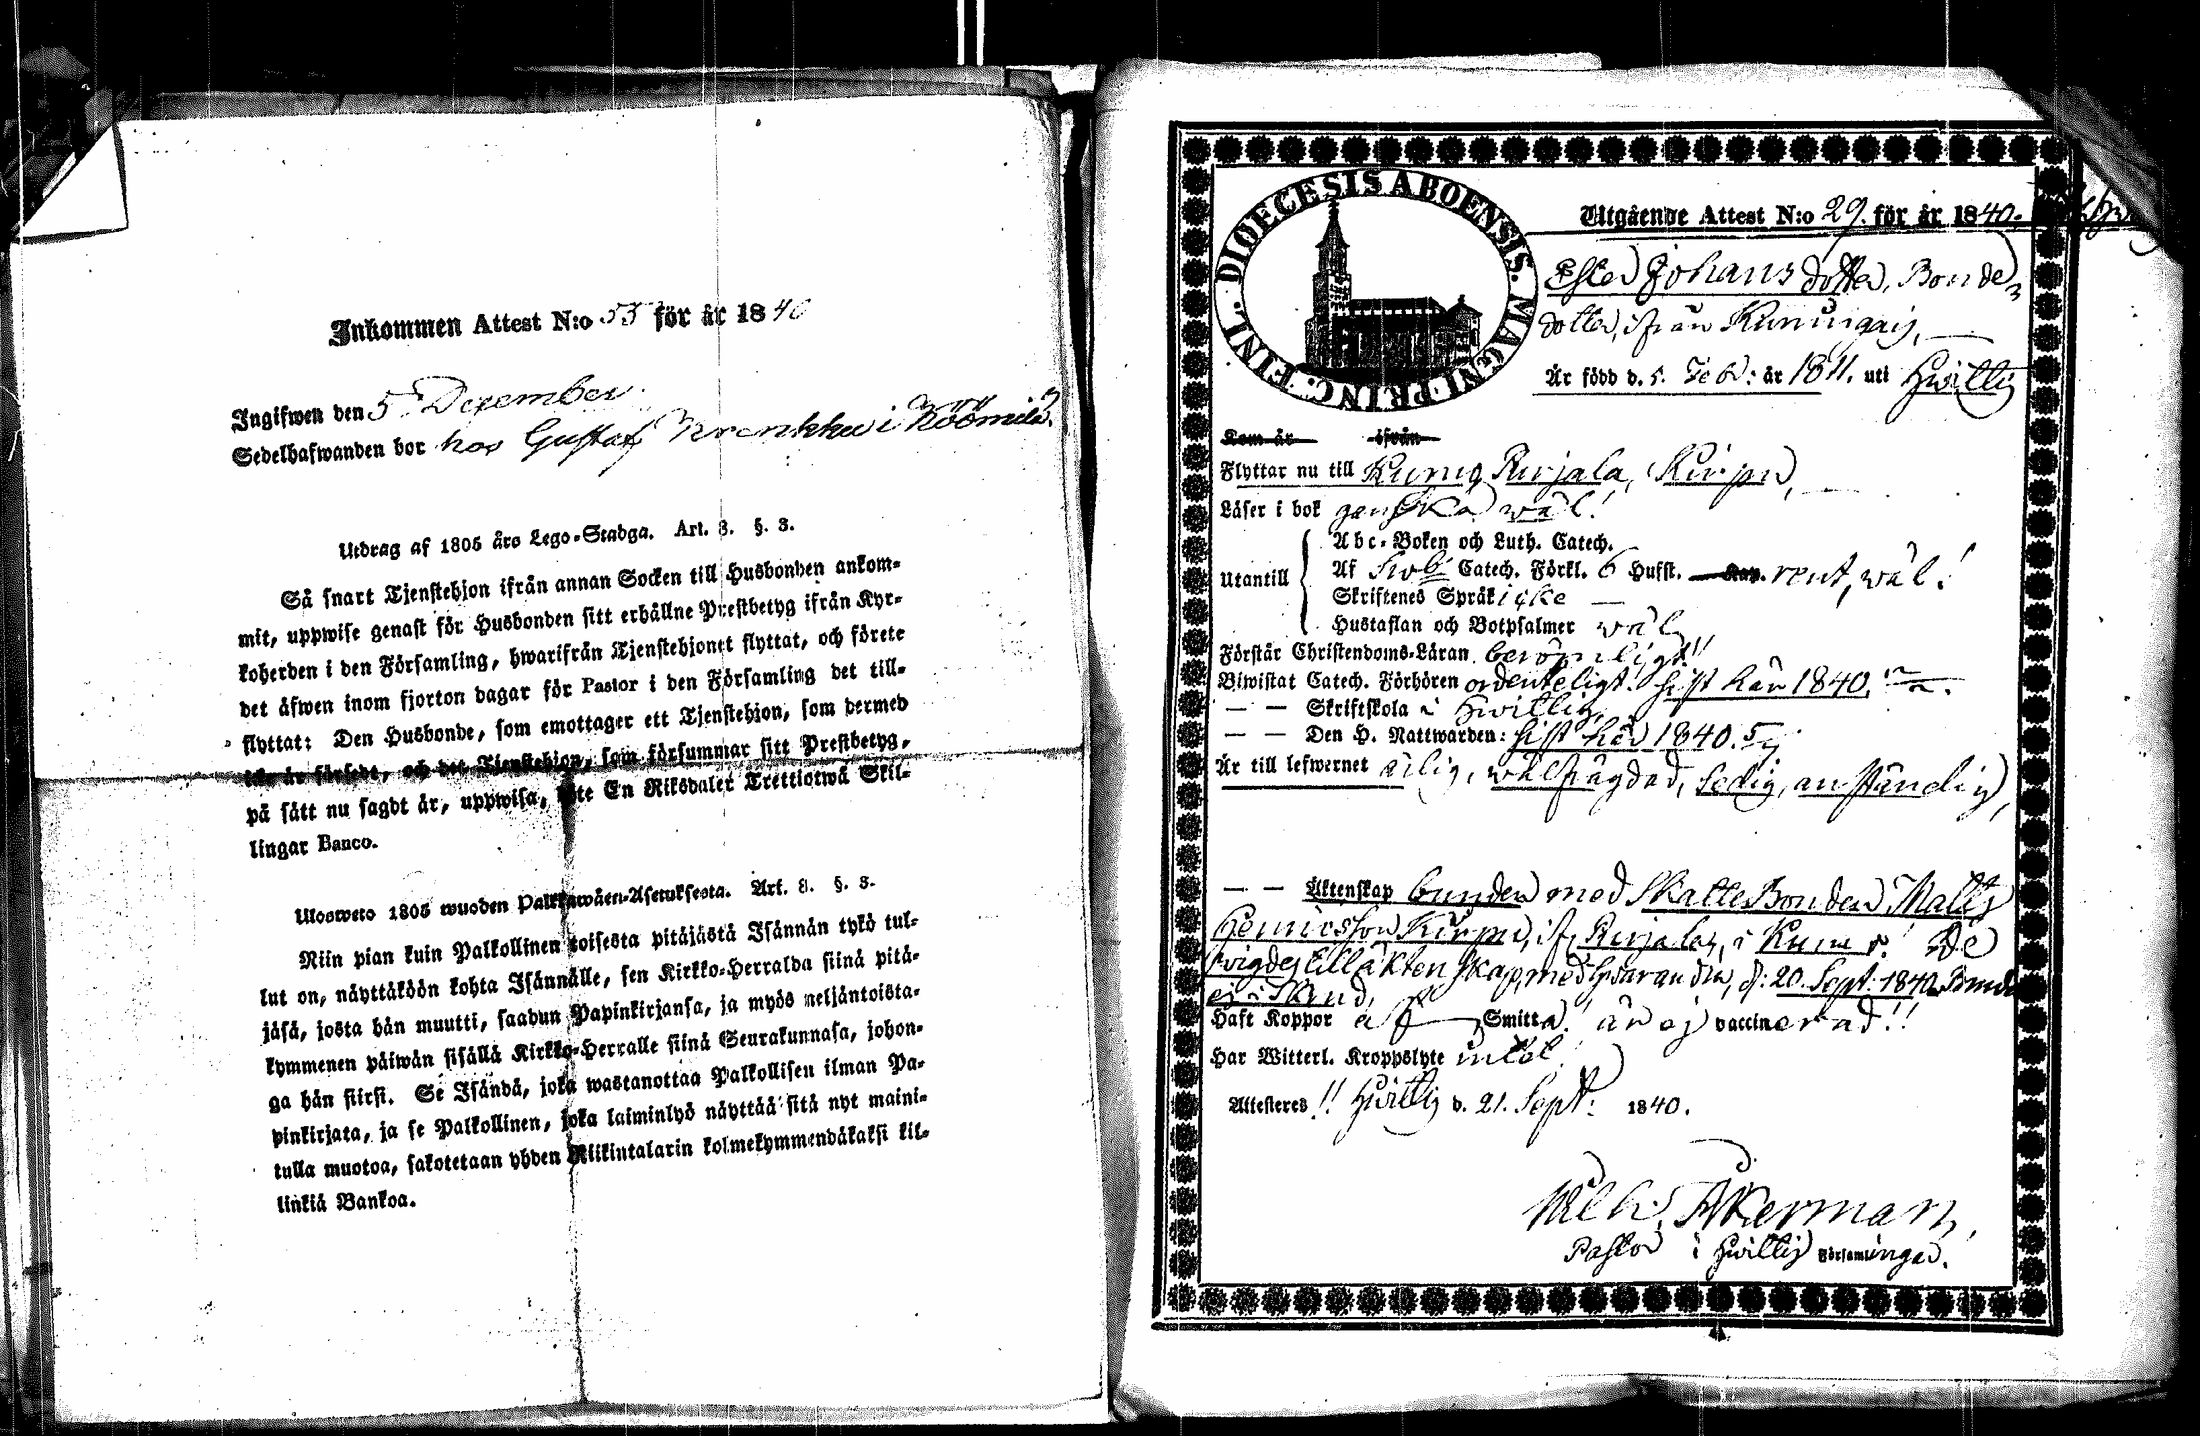 Inkommen Attest N:o 55 för år 1840
Ingifwen den 5 December
Sedelhafwanden bor hos Gustaf Krenkku i Köömilä.
Utdrag af 1805 års Lego-Stadga. Art. 8. §. 3.
Så snart Tjenstehjon ifrån annan Socken till Husbonden ankom-
mit, uppwise genast för Husbonden sitt erhållne Prestbetyg ifrån Kyr-
koherden i den Församling, hwarifrån Tjenstehjonet flyttat, och förete
det äfwen inom fjorton dagar för Pastor i den Församling det till-
flyttat: Den Husbonde, som emottager ett Tjenstehjon, som dermed
icke är försedt, och det Tjenstehjon, som försummar sitt Prestbetyg,
på sätt nu sagdt är, uppwisa, böte En Riksdaler Trettiotwå Skil-
lingar Banco.
Ulosweto 1805 wuoden Palkkawäen-Asetuksesta. Art. 8. §. 3.
Niin pian kuin Palkollinen toisesta pitäjästä Isännän tykö tul-
lut on, näyttäköön kohta Isännälle, sen Kirkko-Herralda siinä pitä-
jäsä, josta hän muutti, saadun Papinkirjansa, ja myös neljäntoista-
kymmenen päiwän sisällä Kirkko-Herralle siinä Seurakunnasa, johon-
ga hän siirsi. Se Isändä, joka wastanottaa Palkollisen ilman Pa-
pinkirjata, ja se Palkollinen, joka laiminlyö näyttää sitä nyt maini-
tulla muotoa, sakotetaan yhden Riikintalarin kolmekymmendäkaksi kil-
linkiä Bankoa.
DIOECESIS ABOENSIS. MAGNI PRINC. FINL.
Utgående Attest N:o 29. för år 1840.
Ester Johansdotter, Bonde-
dotter, ifrån Kunungais,
Är född d. 5. Feb: år 1811. uti Hwittis
Kom år ifrån
Flyttar nu till Kumo, Rurjala, Kirpu,
Läser i bok ganska wäl!
Abc-Boken och Luth. Catech.
Utantill Af Swb. Catech. Förkl. 6 Hufst. Kap. rent, wäl!
Skriftenes Språk icke
Hustaflan och Botpsalmer wäl
Förstår Christendoms-Läran berömligt!!
Biwistat Catech. Förhören ordenteligt! sist här 1840.
— — Skriftskola i Hwittis,
— — Den H. Nattwarden: sist här 1840.
Är till lefwernet ärlig, wälfrägdad, sedig, anständig,
— — Äktenskap bunden med SkatteBonden Matts
Henricsson Kirpu, if. Rurjala, i Kumo! De
wigdes till äktenskap, med hwarandra, d: 20. Sept: 1840.
Haft Koppor af Smitta! är ej vaccinerad!!
Har Witterl. Kroppslyte intet!
Attesteres!! Hwittis d. 21. Sept: 1840.
Wilh. Åkerman,
Pastor i Hwittis Församlingar.